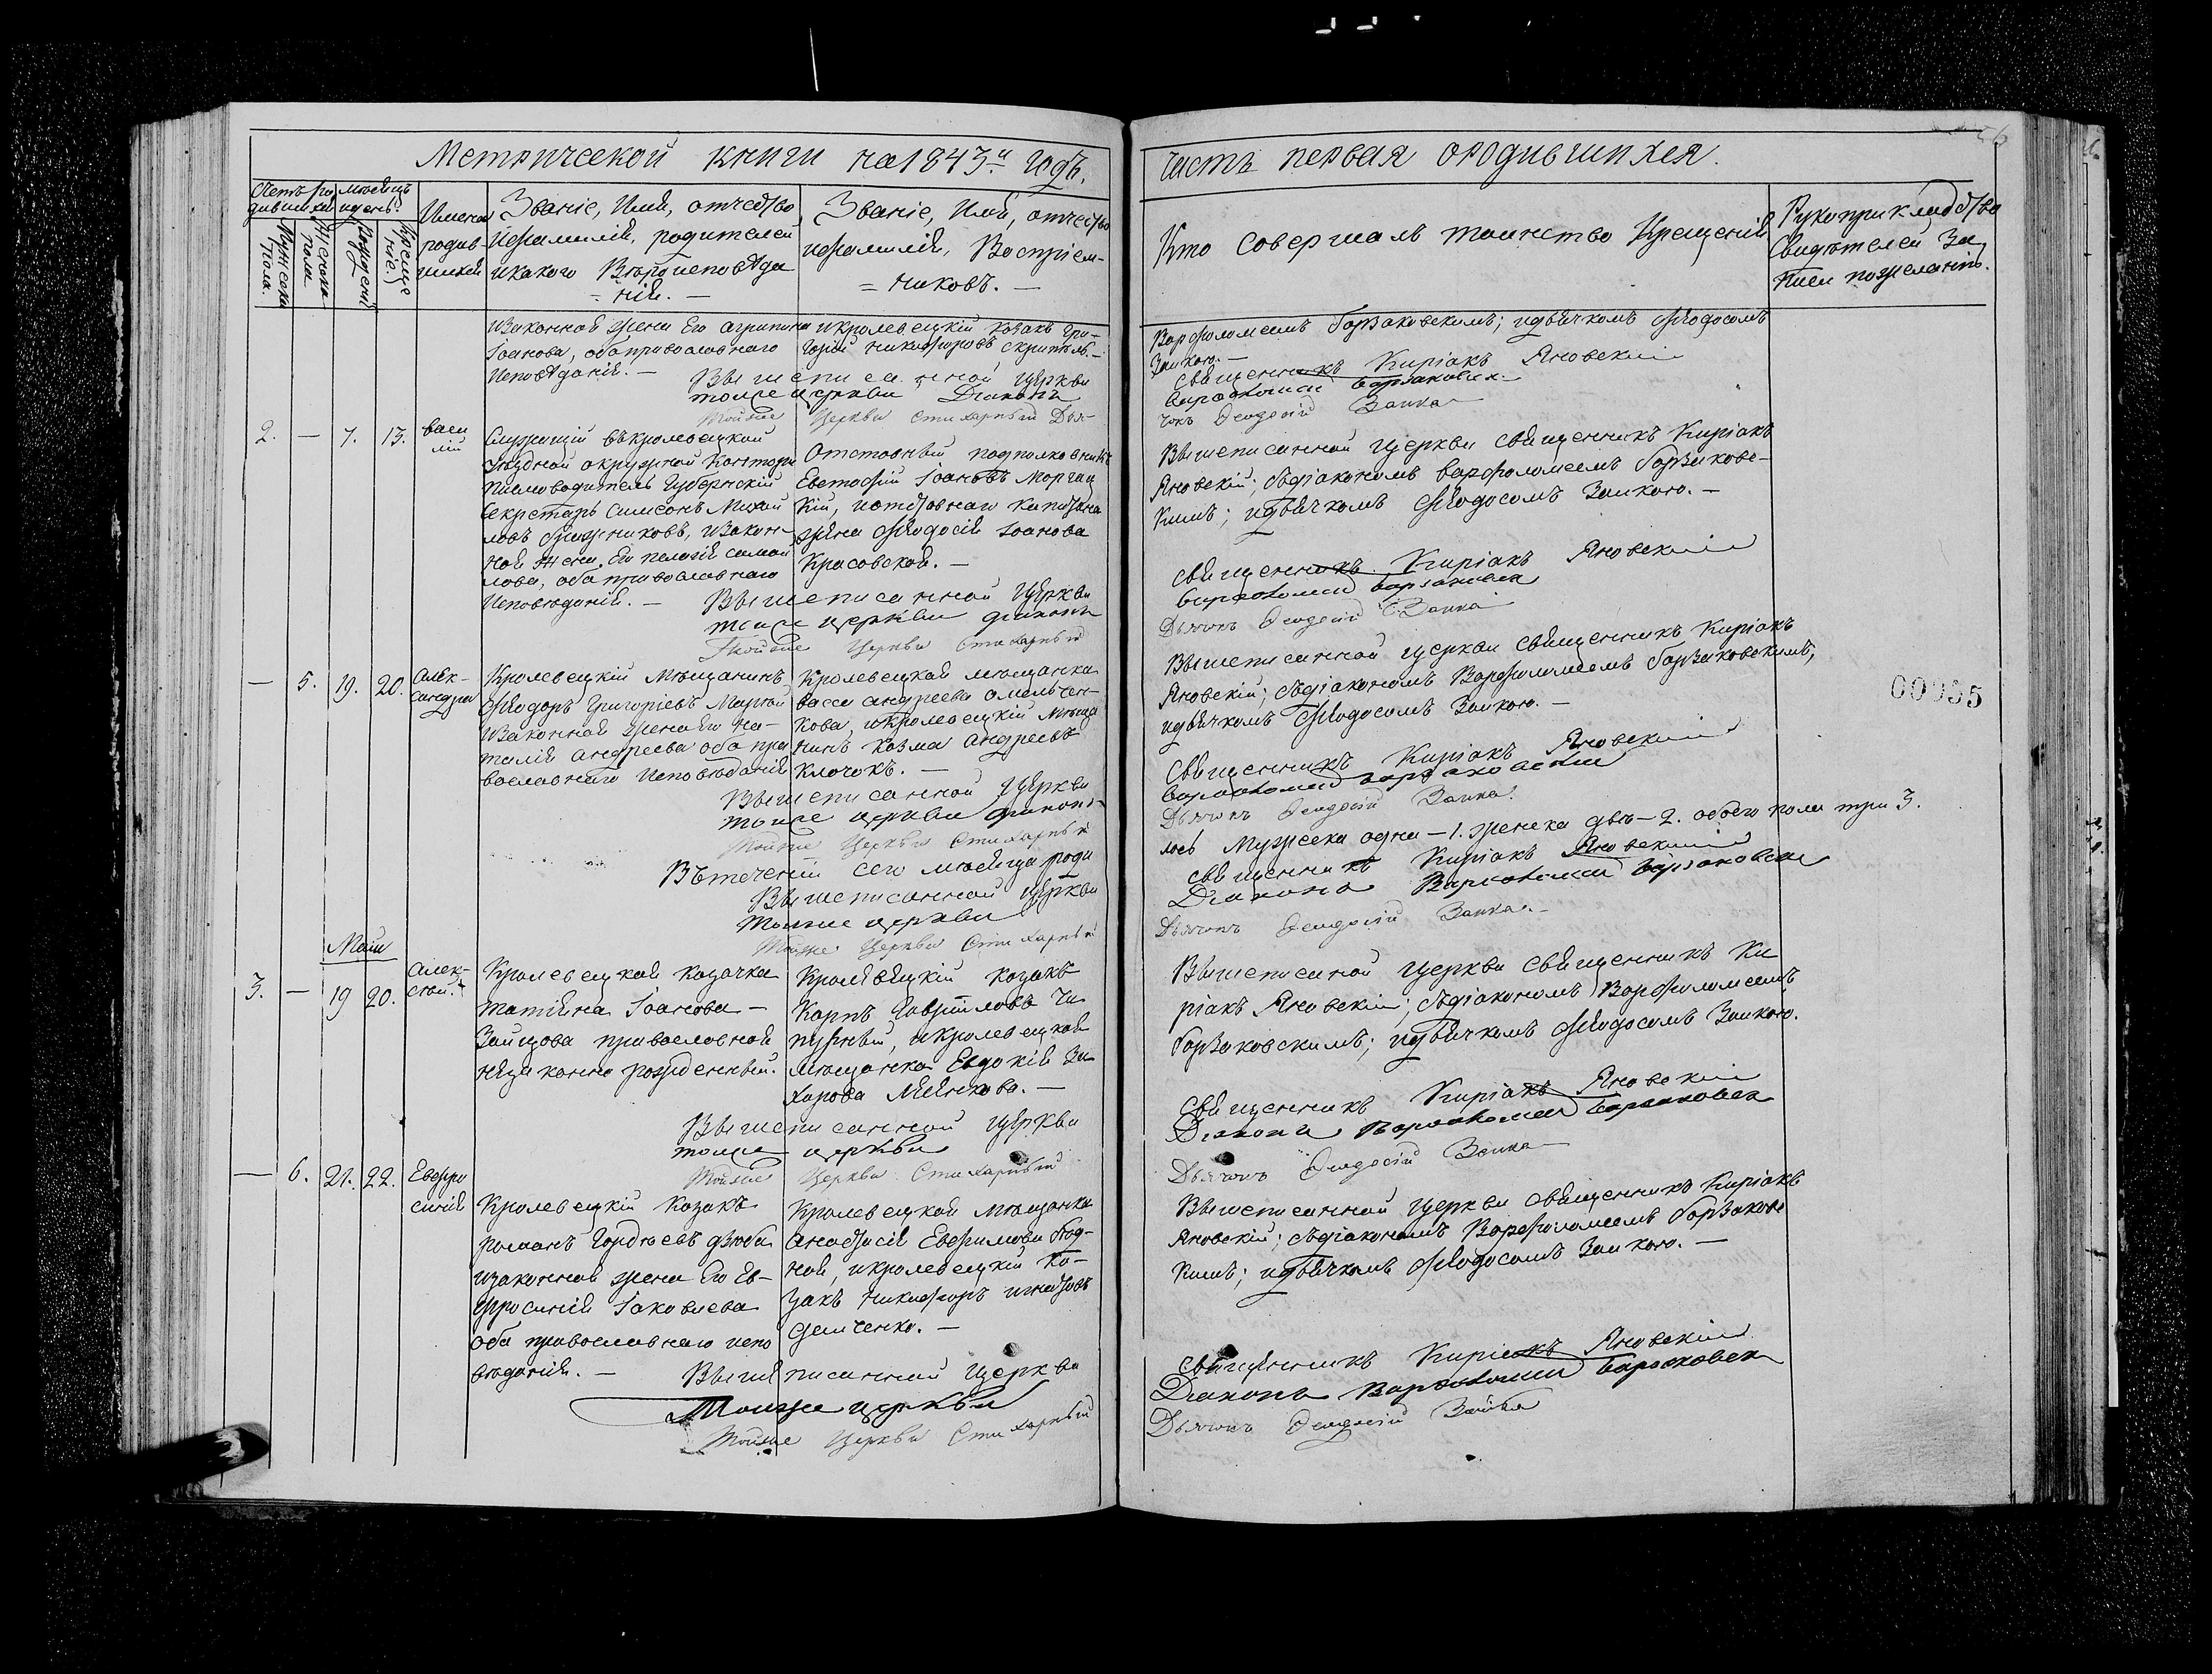 Метрической книги на 1843й годъ.
Счетъ ро
дившихся
мѣсяцъ
и день.
Мужеска
пола.
Женска
пола
Рожденія
Креще
нія
Имена
родив
шихся
Званіе, Имя, отчество
и фамилія, родителей
и какого Вѣроисповѣда
= нія. —
Званіе, Имя, отчество
и фамилія, Воспріем-
= никовъ. —
и законной жены его агрипины
Іоанова, оба православнаго
Исповѣданія. —
и кролевецкій козакъ Гри-
горій никифоровъ скрипель. —
Вышеписанной Церкви
тоиже церкви Диаконъ
Тойже Церкви Стихарный Дья-
2. — 7. 13. васи
лій
Служащій въ кролевецкой
уѣздной окружной Конторѣ
писмоводитель Губернскій
Секретарь Симеонъ Михай
ловъ , и закон
ной жены Его пелагія самой
лова, оба православнаго
Исповѣданія. —
Отставный подполковникъ
Евстафій Іоановъ
кій, и отставнаго капитана
жена Ѳеодосія Іоанова
Красовская. —
Вышеписанной Церкви
тоиже церкви диаконъ
Тойже Церкви Стихарный
— 5. 19. 20. Алек-
сандра
Кролевецкій Мѣщанинъ
Ѳеодоръ Григоріевъ
и законной жены его На-
талія андреева оба пра
вославнаго Исповѣданія
Кролевецкая мѣщанка
васса андреева омельчен-
кова, и кролевецкій мѣща
нинъ козма андреевъ
клочокъ. —
Вышеписанной Церкви
тоиже церкви диаконъ
Тойже Церкви Стихарный
Въ теченіи сего мѣсяца роди
Вышеписанной Церкви
Тоиже церкви
Тойже Церкви Стихарный
Маія
3. — 19 20. Алек-
сѣй.
Кролевецкая козачка
татіяна Іоанова —
Зайцова православная
незаконно рожденный.
Кролевецкій козакъ
Карпъ Гавриловъ
, и кролевецкая
мѣщанка Евдокія За
харова . —
Вышеписанной Церкви
тоиже церкви
Тойже Церкви Стихарный
— 6. 21. 22. Евфро
синія
Кролевецкій Козакъ
романъ Гордѣевъ дзюба
и законной жены Его Ев-
фросинія Іаковлева
оба православнаго испо
вѣданія. —
Кролевецкая мѣщанка
Анастасія Евфимова
ная, и кролевецкій ко-
закъ никифоръ игнатовъ
демченко. —
Вышеписанной Церкви
Тоиже церкви
Тойже Церкви Стихарный
часть первая о родившихся.
Кто совершалъ таинство Крещенія
Рукоприкладство
свидѣтелей за
писи по желанію.
Варфоломеемъ Борзаковскимъ; и дьячкомъ Ѳеодосомъ
Заикою. —
Священникъ Киріакъ Яновскій
варфоломей борзаковск.
чокъ Ѳеодосій Заика
Вышеписанной Церкви священникъ Киріакъ
Яновскій; съ діакономъ варфоломеемъ борзаковс-
кимъ; и дьячкомъ Ѳеодосомъ Заикою. —
священникъ Киріакъ Яновскій
варфоломей борзаковск
Дьячокъ Ѳеодосій Заика
Вышеписанной церкви священникъ Киріакъ
Яновскій; съ діакономъ Варфоломеемъ борзаковскимъ,
и дьячкомъ Ѳеодосомъ Заикою. —
Священникъ Киріакъ Яновскій
варфоломей борзаковскій
Дьячокъ Ѳеодосій Заика.
лось мужеска одна — 1. женска двѣ — 2. обоего пола три 3.
священникъ Киріакъ Яновскій
Диаконъ Варфоломей борзаковск
Дьячокъ Ѳеодосій Заика. —
Вышеписаной Церкви священникъ Ки
ріакъ Яновскій; съ діакономъ Варфоломеемъ
борзаковскимъ; и дьячкомъ Ѳеодосомъ Заикою.
Священникъ Киріакъ Яновскій
Диаконъ Варфоломей борзаковск
Дьячокъ Ѳеодосій Заика
Вышеписанной Церкви священникъ Киріакъ
Яновскій; съ діакономъ Варфоломеемъ борзаковс
кимъ; и дьячкомъ Ѳеодосомъ Заикою. —
Священникъ Киріакъ Яновскій
Диаконъ Варфоломей борзаковск
Дьячокъ Ѳеодосій Заика
00995